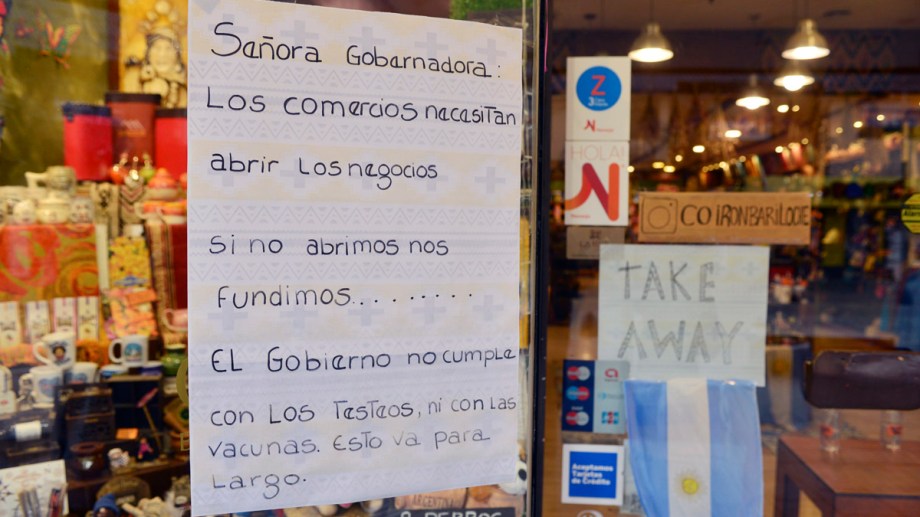 Señora Gobernadora:
Los comercios necesitan
abrir los negocios
si no abrimos nos
fundimos........
EL Gobierno no cumple
con Los Testeos, ni con las
vacunas. Esto va para
Largo.
Z
HOLA!
N
COIRONBARILOCHE
TAKE
AWAY
JCB
Aceptamos
Tarjetas
de Crédito
ARGENTINA